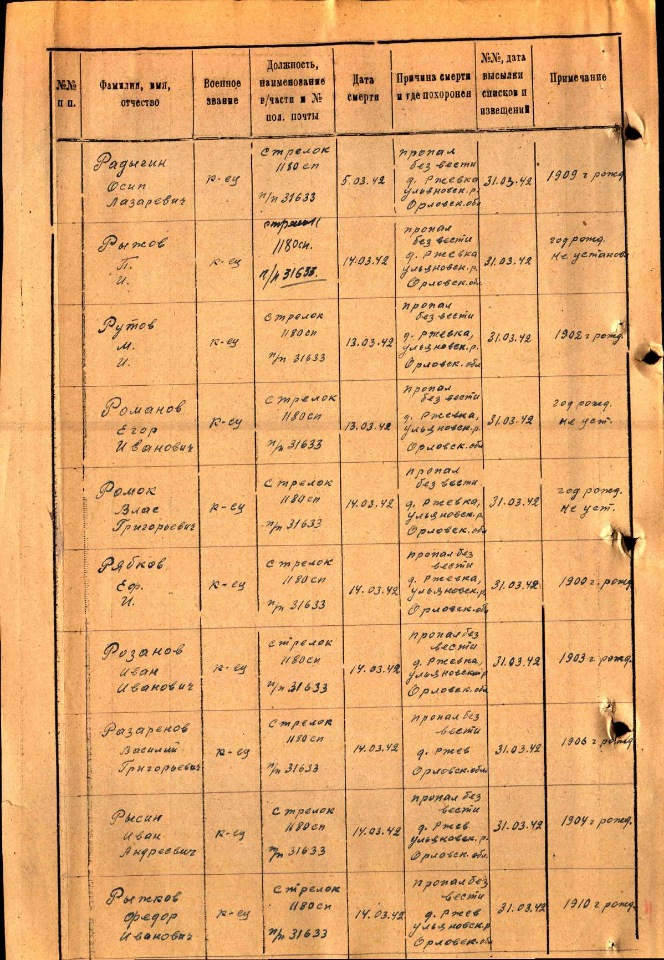 №№ п п.
Фамилия, имя, отчество
Военное звание
Должность, наименование в/части и № пол. почты
Дата смерти
Причина смерти и где похоронен
№№, дата высылки списков и извещений
Примечание
Радыгин Осип Лазаревич
к-ец
стрелок 1180 сп п/п 31633
5.03.42
пропал без вести д. Ржевка ульяновск.р. Орловск.обл
31.03.42
1909 г рожд
Рыжов П. И.
к-ец
стрелок 1180 сп. п/п 31633
14.03.42
пропал без вести д. Ржевка ульяновск.р. Орловск.обл
31.03.42
год рожд. не установ
Рутов М. И.
к-ец
стрелок 1180 сп п/п 31633
13.03.42
пропал без вести д. Ржевка, ульяновск.р. Орловск.обл
31.03.42
1902 г рожд.
Романов Егор Иванович
к-ец
стрелок 1180 сп п/п 31633
13.03.42
пропал без вести д. Ржевка, ульяновск.р. Орловск.обл
31.03.42
год рожд. не уст.
Ромок Влас Григорьевич
к-ец
стрелок 1180 сп п/п 31633
14.03.42
пропал без вести д. Ржевка, ульяновск.р Орловск.обл
31.03.42
год рожд. не уст.
Рябков Еф. И.
к-ец
стрелок 1180 сп п/п 31633
14.03.42
пропал без вести д. Ржевка, ульяновск.р Орловск.обл
31.03.42
1900 г. рожд
Розанов Иван Иванович
к-ец
стрелок 1180 сп п/п 31633
14.03.42
пропал без вести д. Ржевка, ульяновск.р Орловск.обл
31.03.42
1903 г рожд.
Разаренов Василий Григорьевич
к-ец
стрелок 1180 сп п/п 31633
14.03.42
пропал без вести д. Ржев Орловск.обл
31.03.42
1906 г рожд
Рысин Иван Андреевич
к-ец
стрелок 1180 сп п/п 31633
14.03.42
пропал без вести д. Ржев ульяновск.р. Орловск.обл
31.03.42
1904 г рожд.
Рыжков Федор Иванович
к-ец
стрелок 1180 сп п/п 31633
14.03.42
пропал без вести д. Ржев ульяновск.р Орловск.обл
31.03.42
1910 г рожд.